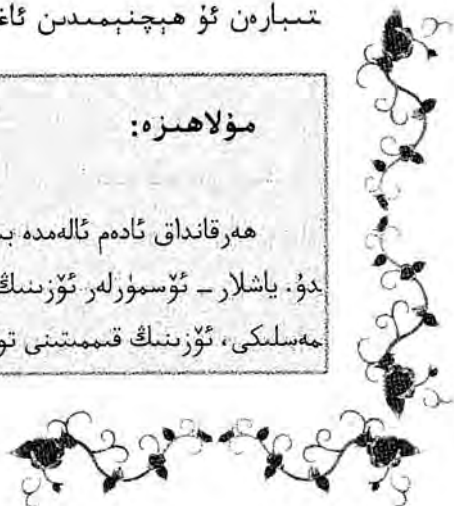 ـتىبارەن ئۇ ھېچنېمىدىن ئاغـ
مۇلاھىزە:
ھەرقانداق ئادەم ئالەمدە بىـ
ـدۇ. ياشلار ـ ئۆسمۈرلەر ئۆزىنىڭ
ـمەسلىكى، ئۆزىنىڭ قىممىتىنى تو